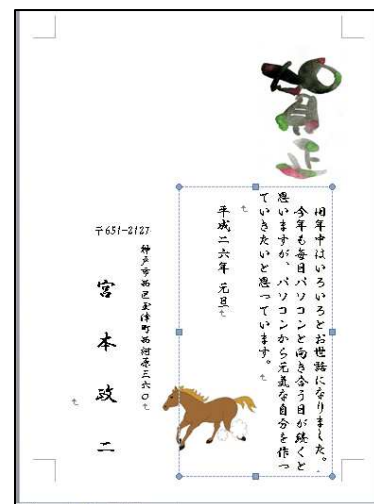 賀正
旧年中はいろいろとお世話になりました。
今年も毎日パソコンと向き合う日が続くと
思いますが、パソコンから元気な自分を作っ
ていきたいと思っています。
平成二六年 元旦
〒651-2127
神戸市西区玉津町西河原三六〇
宮本政二